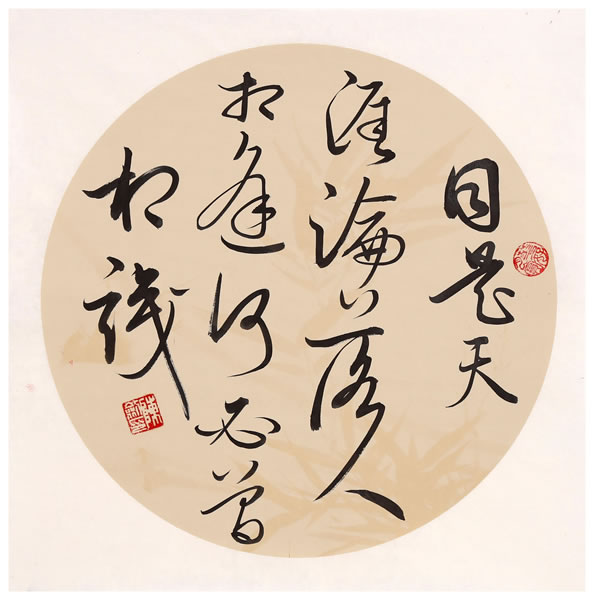 同是天
涯淪落人
相逢何必曾
相識